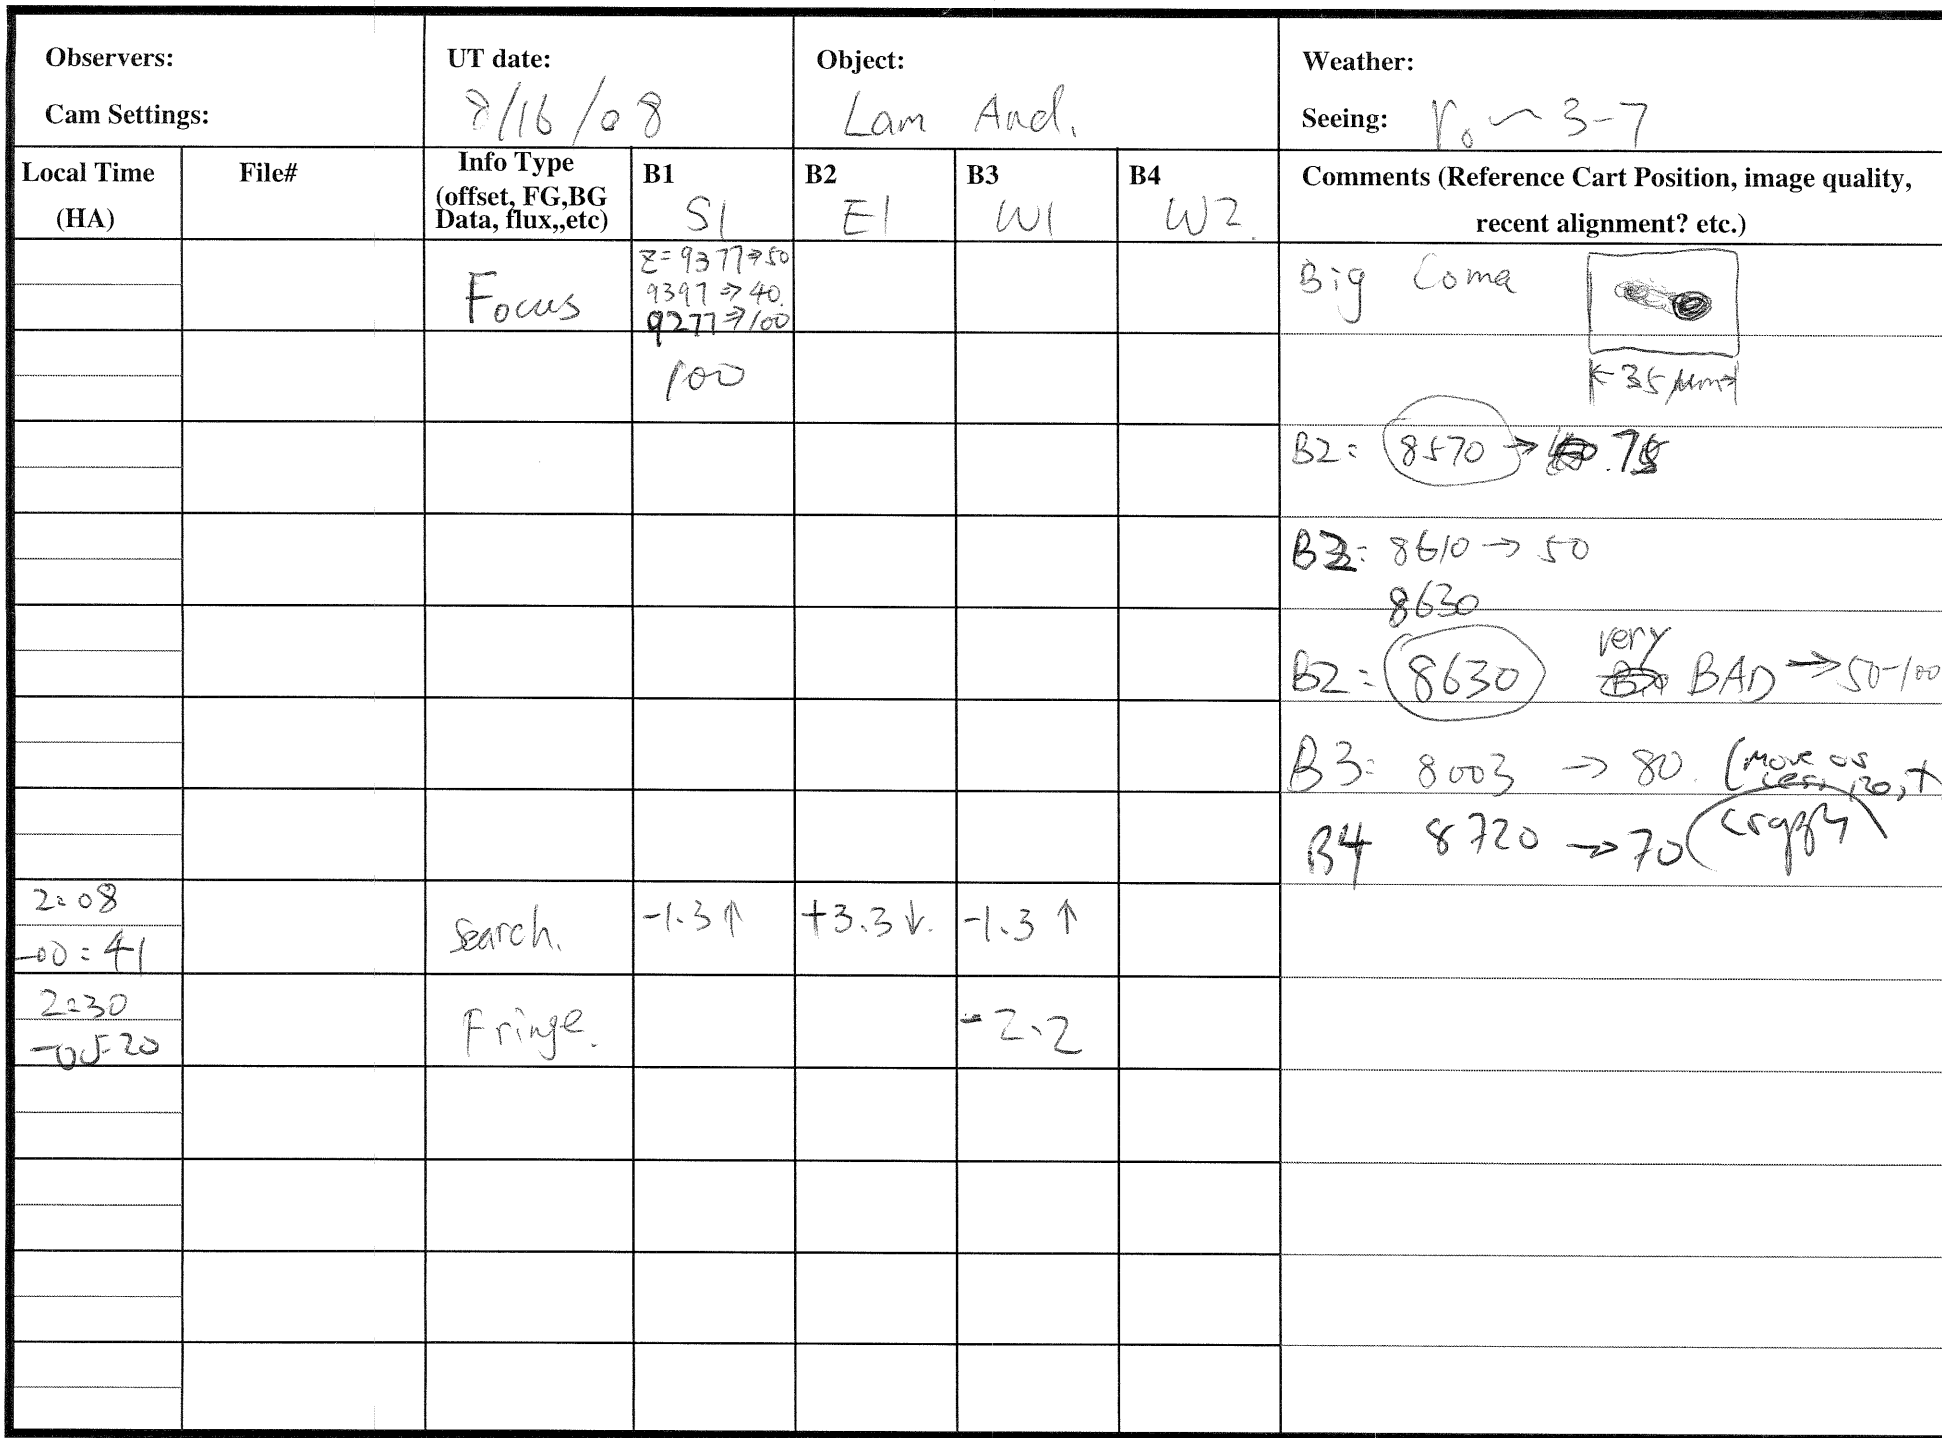 Observers:
Cam Settings:
UT date:
8/16/08
Object:
Lam And.
Weather:
Seeing: r₀ ~ 3-7
Local Time
(HA)
File#
Info Type
(offset, FG,BG
Data, flux,,etc)
B1
S1
B2
E1
B3
W1
B4
W2
Comments (Reference Cart Position, image quality,
recent alignment? etc.)
Focus
z=9377→50
9397⇒40
9277⇒100
Big Coma
100
←35 μm→
B2: 8570 → .75
8610 → 50
8630
B2: 8630 very BAD → 50-100
B3: 8003 → 80. (move os
B4 8720 → 70
2:08
-00:41
Search.
-1.3↑
+3.3↓
-1.3↑
2:30
20
Fringe.
-2.2